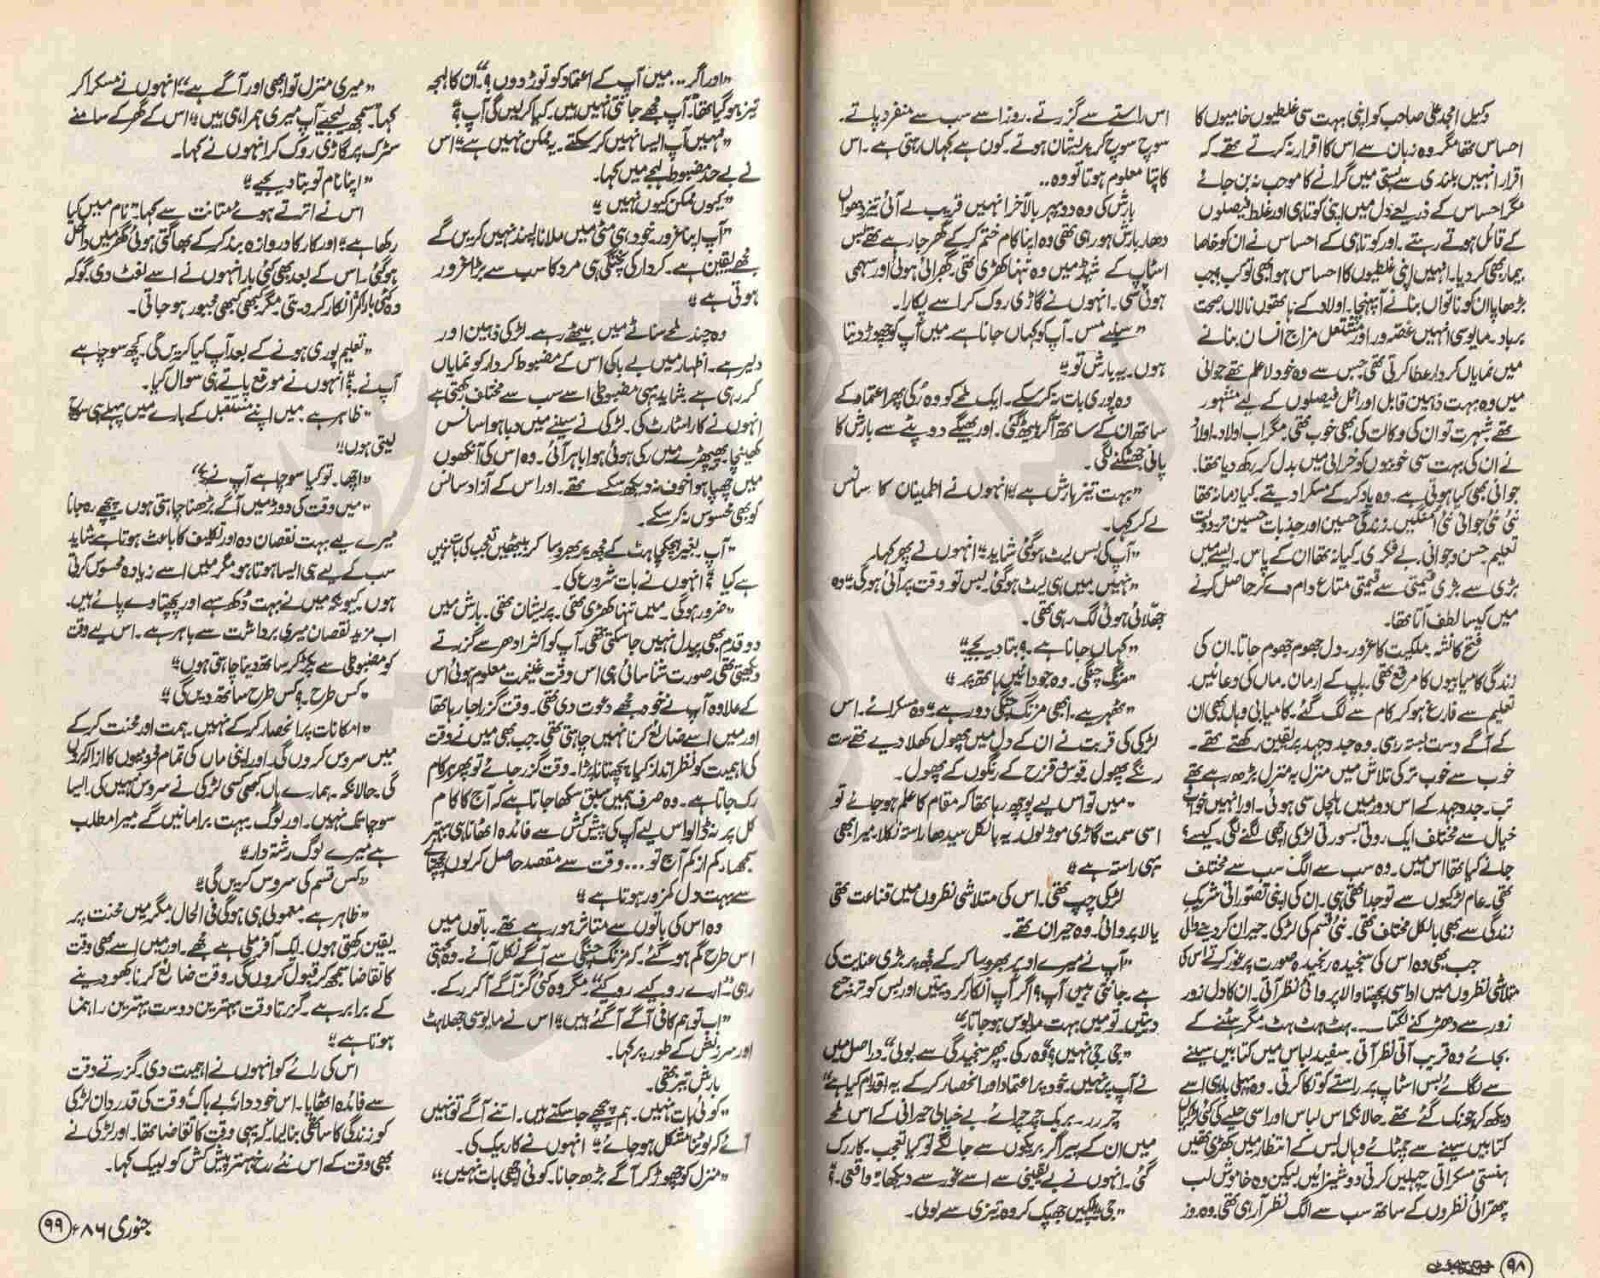 وکیل امجد علی صاحب کو اپنی بہت سی غلطیوں خامیوں کا
احساس تھا مگر وہ زبان سے اس کا اقرار نہ کرتے تھے کہ
اقرار انہیں بلندی سے پستی میں گرانے کا موجب نہ بن جائے
مگر احساس کے ذریعے دل میں اپنی کوتاہی اور غلط فیصلوں
کے قائل ہوتے رہتے۔ اور کوتاہی کے احساس نے ان کو خاصا
بیمار بھی کر دیا۔ انہیں اپنی غلطیوں کا احساس ہوا بھی تو کب جب
بڑھاپا ان کو ناتواں بنانے آ پہنچا۔ اولاد کے ہاتھوں نالاں صحت
برباد۔ مایوسی انہیں غصہ ور اور مشتعل مزاج انسان بنانے
میں نمایاں کردار عطا کرتی تھی جس سے وہ خود لاعلم تھے جوانی
میں وہ بہت ذہین قابل اور اٹل فیصلوں کے لیے مشہور
تھے شہرت تو ان کی وکالت کی بھی خوب تھی مگر اب اولاد۔ اولاد
نے ان کی بہت سی خوبیوں کو خرابی میں بدل کر رکھ دیا تھا۔
جوانی بھی کیا ہوتی ہے۔ وہ یاد کر کے مسکرا دیتے۔ کیا زمانہ تھا
نئی نئی جوانی نئی امنگیں۔ زندگی حسین اور جذبات حسین تر دولت
تعلیم حسن و جوانی۔ بے فکری۔ کیا نہ تھا ان کے پاس۔ ایسے میں
بڑی سے بڑی قیمتی سے قیمتی متاع دام دے کر حاصل کرنے
میں کیسا لطف آتا تھا۔
فتح کا نشہ۔ ملکیت کا غرور۔ دل جھوم جھوم جاتا۔ ان کی
زندگی کامیابیوں کا مرقع تھی۔ باپ کے ارمان۔ ماں کی دعائیں
تعلیم سے فارغ ہو کر کام سے لگ گئے۔ کامیابی وہاں بھی ان
کے آگے دست بستہ رہی۔ وہ جدوجہد پر یقین رکھتے تھے۔
خوب سے خوب تر کی تلاش میں منزل بہ منزل بڑھ رہے تھے
تب۔ جدوجہد کے اس دور میں ہلچل سی ہوئی۔ اور انہیں خواب
خیال سے مختلف ایک روتی بسورتی لڑکی اچھی لگنے لگی۔ کیسے؟
جانے کیا تھا اس میں۔ وہ سب سے الگ سب سے مختلف
تھی۔ عام لڑکیوں سے تو جدا تھی ہی۔ ان کی اپنی تصوراتی شریک
زندگی سے بھی بالکل مختلف تھی۔ نئی قسم کی لڑکی۔ حیران کر دینے والی
جب بھی وہ اس کی سنجیدہ رنجیدہ صورت پر غور کرتے اس کی
متلاشی نظروں میں اداسی پچھتاوا لاپروائی نظر آتی۔ ان کا دل زور
زور سے دھڑکنے لگتا۔۔۔ ہٹ ہٹ ہٹ۔ مگر ہٹنے کے
بجائے وہ قریب آتی نظر آتی۔ سفید لباس میں کتابیں سینے
سے لگائے بس اسٹاپ پر راستے کو تکا کرتی۔ وہ پہلی بار ہی اسے
دیکھ کر چونک گئے تھے۔ حالانکہ اس لباس اور اسی حلیے کی کئی لڑکیاں
کتابیں سینے سے چمٹائے وہاں بس کے انتظار میں کھڑی تھیں
ہنستی مسکراتی چہلیں کرتی دوشیزائیں لیکن وہ خاموش لب
پتھرائی نظروں کے ساتھ سب سے الگ نظر آ رہی تھی۔ وہ روز
اس راستے سے گزرتے۔ روز اسے سب سے منفرد پاتے۔
سوچ سوچ کر پریشان ہوتے۔ کون ہے کہاں رہتی ہے۔ اس
کا پتا معلوم ہوتا تو وہ۔۔
بارش کی وہ دوپہر بالآخر انہیں قریب لے آئی تیز دھواں
دھار بارش ہو رہی تھی وہ اپنا کام ختم کر کے گھر جا رہے تھے بس
اسٹاپ کے شیڈ میں وہ تنہا کھڑی تھی گھبرائی ہوئی اور سہمی
ہوئی سی۔ انہوں نے گاڑی روک کر اسے پکارا۔
”سنیئے مس۔ آپ کو کہاں جانا ہے میں آپ کو چھوڑ دیتا
ہوں۔ یہ بارش تو۔“
وہ پوری بات نہ کر سکے۔ ایک لمحے کو وہ رکی پھر اعتماد کے
ساتھ ان کے ساتھ آ کر بیٹھ گئی۔ اور بھیگے دوپٹے سے بارش کا
پانی جھٹکنے لگی۔
”بہت تیز بارش ہے“ انہوں نے اطمینان کا سانس
لے کر کہا۔
”آپ کی بس لیٹ ہو گئی شاید“ انہوں نے پھر کہا۔
”نہیں میں ہی لیٹ ہو گئی۔ بس تو وقت پر آئی ہو گی“ وہ
جھلائی ہوئی لگ رہی تھی۔
”کہاں جانا ہے۔ ؟ بتا دیجیے“
”مزنگ چنگی۔ وہ جو دائیں ہاتھ پر“
”ٹھہریے۔ ابھی مزنگ چنگی دور ہے“ وہ مسکرائے۔ اس
لڑکی کی قربت نے ان کے دل میں پھول کھلا دیے تھے ست
رنگے پھول۔ قوس قزح کے رنگوں کے پھول۔
”میں تو اس لیے پوچھ رہا تھا کہ مقام کا علم ہو جائے تو
اسی سمت گاڑی موڑ لوں۔ یہ بالکل سیدھا راستہ نکلا۔ میرا بھی
یہی راستہ ہے“
لڑکی چپ تھی۔ اس کی متلاشی نظروں میں قناعت تھی
یا لاپروائی۔ وہ حیران تھے۔
”آپ نے میرے اوپر بھروسا کر کے مجھ پر بڑی عنایت کی
ہے۔ جانتی ہیں آپ؟ اگر آپ انکار کر دیتیں اور بس کو ترجیح
دیتیں۔ تو میں بہت مایوس ہو جاتا“
”جی جی نہیں؟“ وہ رکی۔ پھر سنجیدگی سے بولی۔ ”دراصل میں
نے آپ پر نہیں۔ خود پر اعتماد اور انحصار کر کے یہ اقدام کیا ہے“
چرررر۔ بریک چرچرائے بے خیالی حیرانی کے اس لمحے
میں ان کے پیر اگر بریکوں سے جا لگے تو کیا تعجب۔ کار رک
گئی۔ انہوں نے بے یقینی سے اسے غور سے دیکھا ”واقعی۔؟“
”جی“ پلکیں جھپک کر وہ تیزی سے بولی۔
۹۸
”اور اگر۔۔۔ میں آپ کے اعتماد کو توڑ دوں؟“ ان کا لہجہ
تیز ہو گیا تھا۔ ”آپ مجھے جانتی نہیں ہیں۔ کیا کر لیں گی آپ؟“
”نہیں آپ ایسا نہیں کر سکتے۔ یہ ممکن نہیں ہے“ اس
نے بے حد مضبوط لہجے میں کہا۔
”کیوں ممکن کیوں نہیں“
”آپ اپنا غرور۔ خود ہی مٹی میں ملانا پسند نہیں کریں گے
مجھے یقین ہے۔ کردار کی پختگی ہی مرد کا سب سے بڑا غرور
ہوتی ہے“
وہ چند لمحے سناٹے میں بیٹھے رہے۔ لڑکی ذہین اور
دلیر ہے۔ اظہار میں بے باکی اس کے مضبوط کردار کو نمایاں
کر رہی ہے۔ شاید یہی مضبوطی اسے سب سے مختلف رکھتی ہے
انہوں نے کار اسٹارٹ کی۔ لڑکی نے سینے میں دبا ہوا سانس
کھینچا۔ پھیپھڑے میں رکی ہوئی ہوا باہر آئی۔ وہ اس کی آنکھوں
میں چھپا ہوا خوف نہ دیکھ سکے تھے۔ اور اس کے آزاد سانس
کو بھی محسوس نہ کر سکے۔
”آپ بغیر ہچکچاہٹ کے مجھ پر بھروسا کر بیٹھیں تعجب کی بات نہیں
ہے کیا؟“ انہوں نے بات شروع کی۔
”ضرور ہو گی۔ میں تنہا کھڑی تھی۔ پریشان تھی۔ بارش میں
دو قدم بھی پیدل نہیں جا سکتی تھی۔ آپ کو اکثر ادھر سے گزرتے
دیکھتی تھی۔ صورت شناسائی ہی اس وقت غنیمت معلوم ہوئی اس
کے علاوہ آپ نے خود مجھے دعوت دی تھی۔ وقت گزرا جا رہا تھا
اور میں اسے ضائع کرنا نہیں چاہتی تھی۔ جب بھی میں نے وقت
کی اہمیت کو نظر انداز کیا پچھتانا پڑا۔ وقت گزر جائے تو پھر ہر کام
رک جاتا ہے۔ وہ صرف ہمیں سبق سکھا جاتا ہے کہ آج کا کام
کل پر نہ ٹالو اس لیے آپ کی پیش کش سے فائدہ اٹھانا ہی بہتر
سمجھا۔ کم از کم آج تو۔۔۔ وقت سے مقصد حاصل کر لوں پچھتانے
سے بہت دل کمزور ہوتا ہے“
وہ اس کی باتوں سے متاثر ہو رہے تھے۔ باتوں میں
اس طرح گم ہو گئے کہ مزنگ چنگی سے آگے نکل آئے۔ وہ کہتی
رہی۔ ”ارے روکیے روکیے“ مگر وہ کئی گز آگے آ کر رکے۔
”اب تو ہم کافی آگے آ گئے ہیں“ اس نے مایوسی جھلاہٹ
اور سرزنش کے طور پر کہا۔
بارش تیز تھی۔
”کوئی بات نہیں۔ ہم پیچھے جا سکتے ہیں۔ اتنے آگے تو نہیں
آئے کہ لوٹنا مشکل ہو جائے“ انہوں نے کار بیک کی۔
”منزل کو چھوڑ کر آگے بڑھ جانا۔ کوئی اچھی بات نہیں“
”میری منزل تو ابھی اور آگے ہے“ انہوں نے مسکرا کر
کہا۔ ”سمجھ لیجیے آپ میری ہمراہی ہیں“ اس کے گھر کے سامنے
سڑک پر گاڑی روک کر انہوں نے کہا۔
”اپنا نام تو بتا دیجیے“
اس نے اترتے ہوئے متانت سے کہا۔ ”نام میں کیا
رکھا ہے“ اور کار کا دروازہ بند کر کے بھاگتی ہوئی گھر میں داخل
ہو گئی۔ اس کے بعد بھی کئی بار انہوں نے اسے لفٹ دی۔ گو کہ
وہ کئی بار انکار کر دیتی۔ مگر کبھی کبھی مجبور ہو جاتی۔
”تعلیم پوری ہونے کے بعد آپ کیا کریں گی۔ کچھ سوچا ہے
آپ نے۔؟“ انہوں نے موقع پاتے ہی سوال کیا۔
”ظاہر ہے میں اپنے مستقبل کے بارے میں پہلے ہی سوچ
لیتی ہوں“
”اچھا۔ تو کیا سوچا ہے آپ نے؟“
”میں وقت کی دوڑ میں آگے بڑھنا چاہتی ہوں پیچھے رہ جانا
میرے لیے بہت نقصان دہ اور تکلیف کا باعث ہوتا ہے شاید
سب کے لیے ہی ایسا ہوتا ہو۔ مگر میں اسے زیادہ محسوس کرتی
ہوں۔ کیونکہ میں نے بہت دکھ سہے اور پچھتاوے پائے ہیں۔
اب مزید نقصان میری برداشت سے باہر ہے۔ اس لیے وقت
کو مضبوطی سے پکڑ کر ساتھ دینا چاہتی ہوں“
”کس طرح۔؟ کس طرح ساتھ دیں گی“
”امکانات پر انحصار کر کے نہیں۔ ہمت اور محنت کر کے
میں سروس کروں گی۔ اور اپنی ماں کی تمام محرومیوں کا ازالہ کروں
گی۔ حالانکہ۔ ہمارے ہاں کبھی کسی لڑکی نے سروس نہیں کی۔ ایسا
سوچا تک نہیں۔ اور لوگ۔ بہت برا مانیں گے میرا مطلب
ہے میرے لوگ رشتہ دار“
”کس قسم کی سروس کریں گی“
”ظاہر ہے۔ معمولی ہی ہو گی فی الحال۔ مگر میں محنت پر
یقین رکھتی ہوں۔ ایک آفر ملی ہے مجھے۔ اور میں اسے بھی وقت
کا تقاضا سمجھ کر قبول کروں گی۔ وقت ضائع کرنا۔ کھو دینے
کے برابر ہے۔ گزرتا وقت بہترین دوست بہترین راہنما
ہوتا ہے“
اس کی رائے کو انہوں نے اہمیت دی۔ گزرتے وقت
سے فائدہ اٹھایا۔ اس خوددار بے باک وقت کی قدردان لڑکی
کو زندگی کا ساتھی بنا لیا کہ یہی وقت کا تقاضا تھا۔ اور لڑکی نے
بھی وقت کے اس نئے رخ بہتر پیش کش کو لبیک کہا۔
جنوری ۸۶ء ۹۹